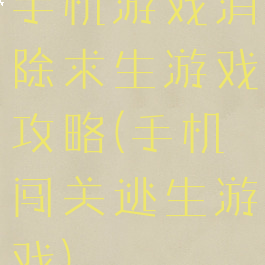 手机游戏消
除求生游戏
攻略(手机
闯关逃生游
戏)